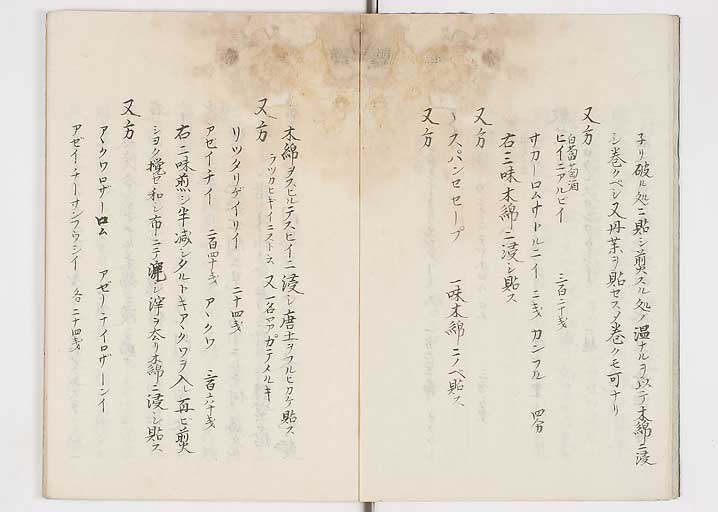 子リ破ル処ニ貼シ煎スル処ノ温ナルヲ以テ木綿ニ浸
シ巻クベシ又丹薬ヲ貼セスノ巻クモ可ナリ
又方
白葡萄酒
ヒイニアルビイ 三百二十戔
サカーロムサトルニイ 二戔 カンフル 四分
右三味木綿ニ浸シ貼ス
又方
スパンセセープ 一味木綿ニノベ貼ス
又方
木綿ヲスヒルテスヒイニ浸シ唐土ヲフルヒカケ貼ス
ラツカヒキイニストス 又一名マアガテメルキ
又方
リツタリゲイリイ 二十四戔
アゼイチイ 二百四十戔 アヽクワ 三百六十戔
右二味煎シ半減シタルトキアヽクワヲ入レ再ヒ煎
シヨク攪セ和シ布ニテ漉シ滓ヲ去リ木綿ニ浸シ貼ス
又方
アヽクワロザーロム アゼノテイロザーシイ
アゼイチーナンフウシイ 各二十四戔